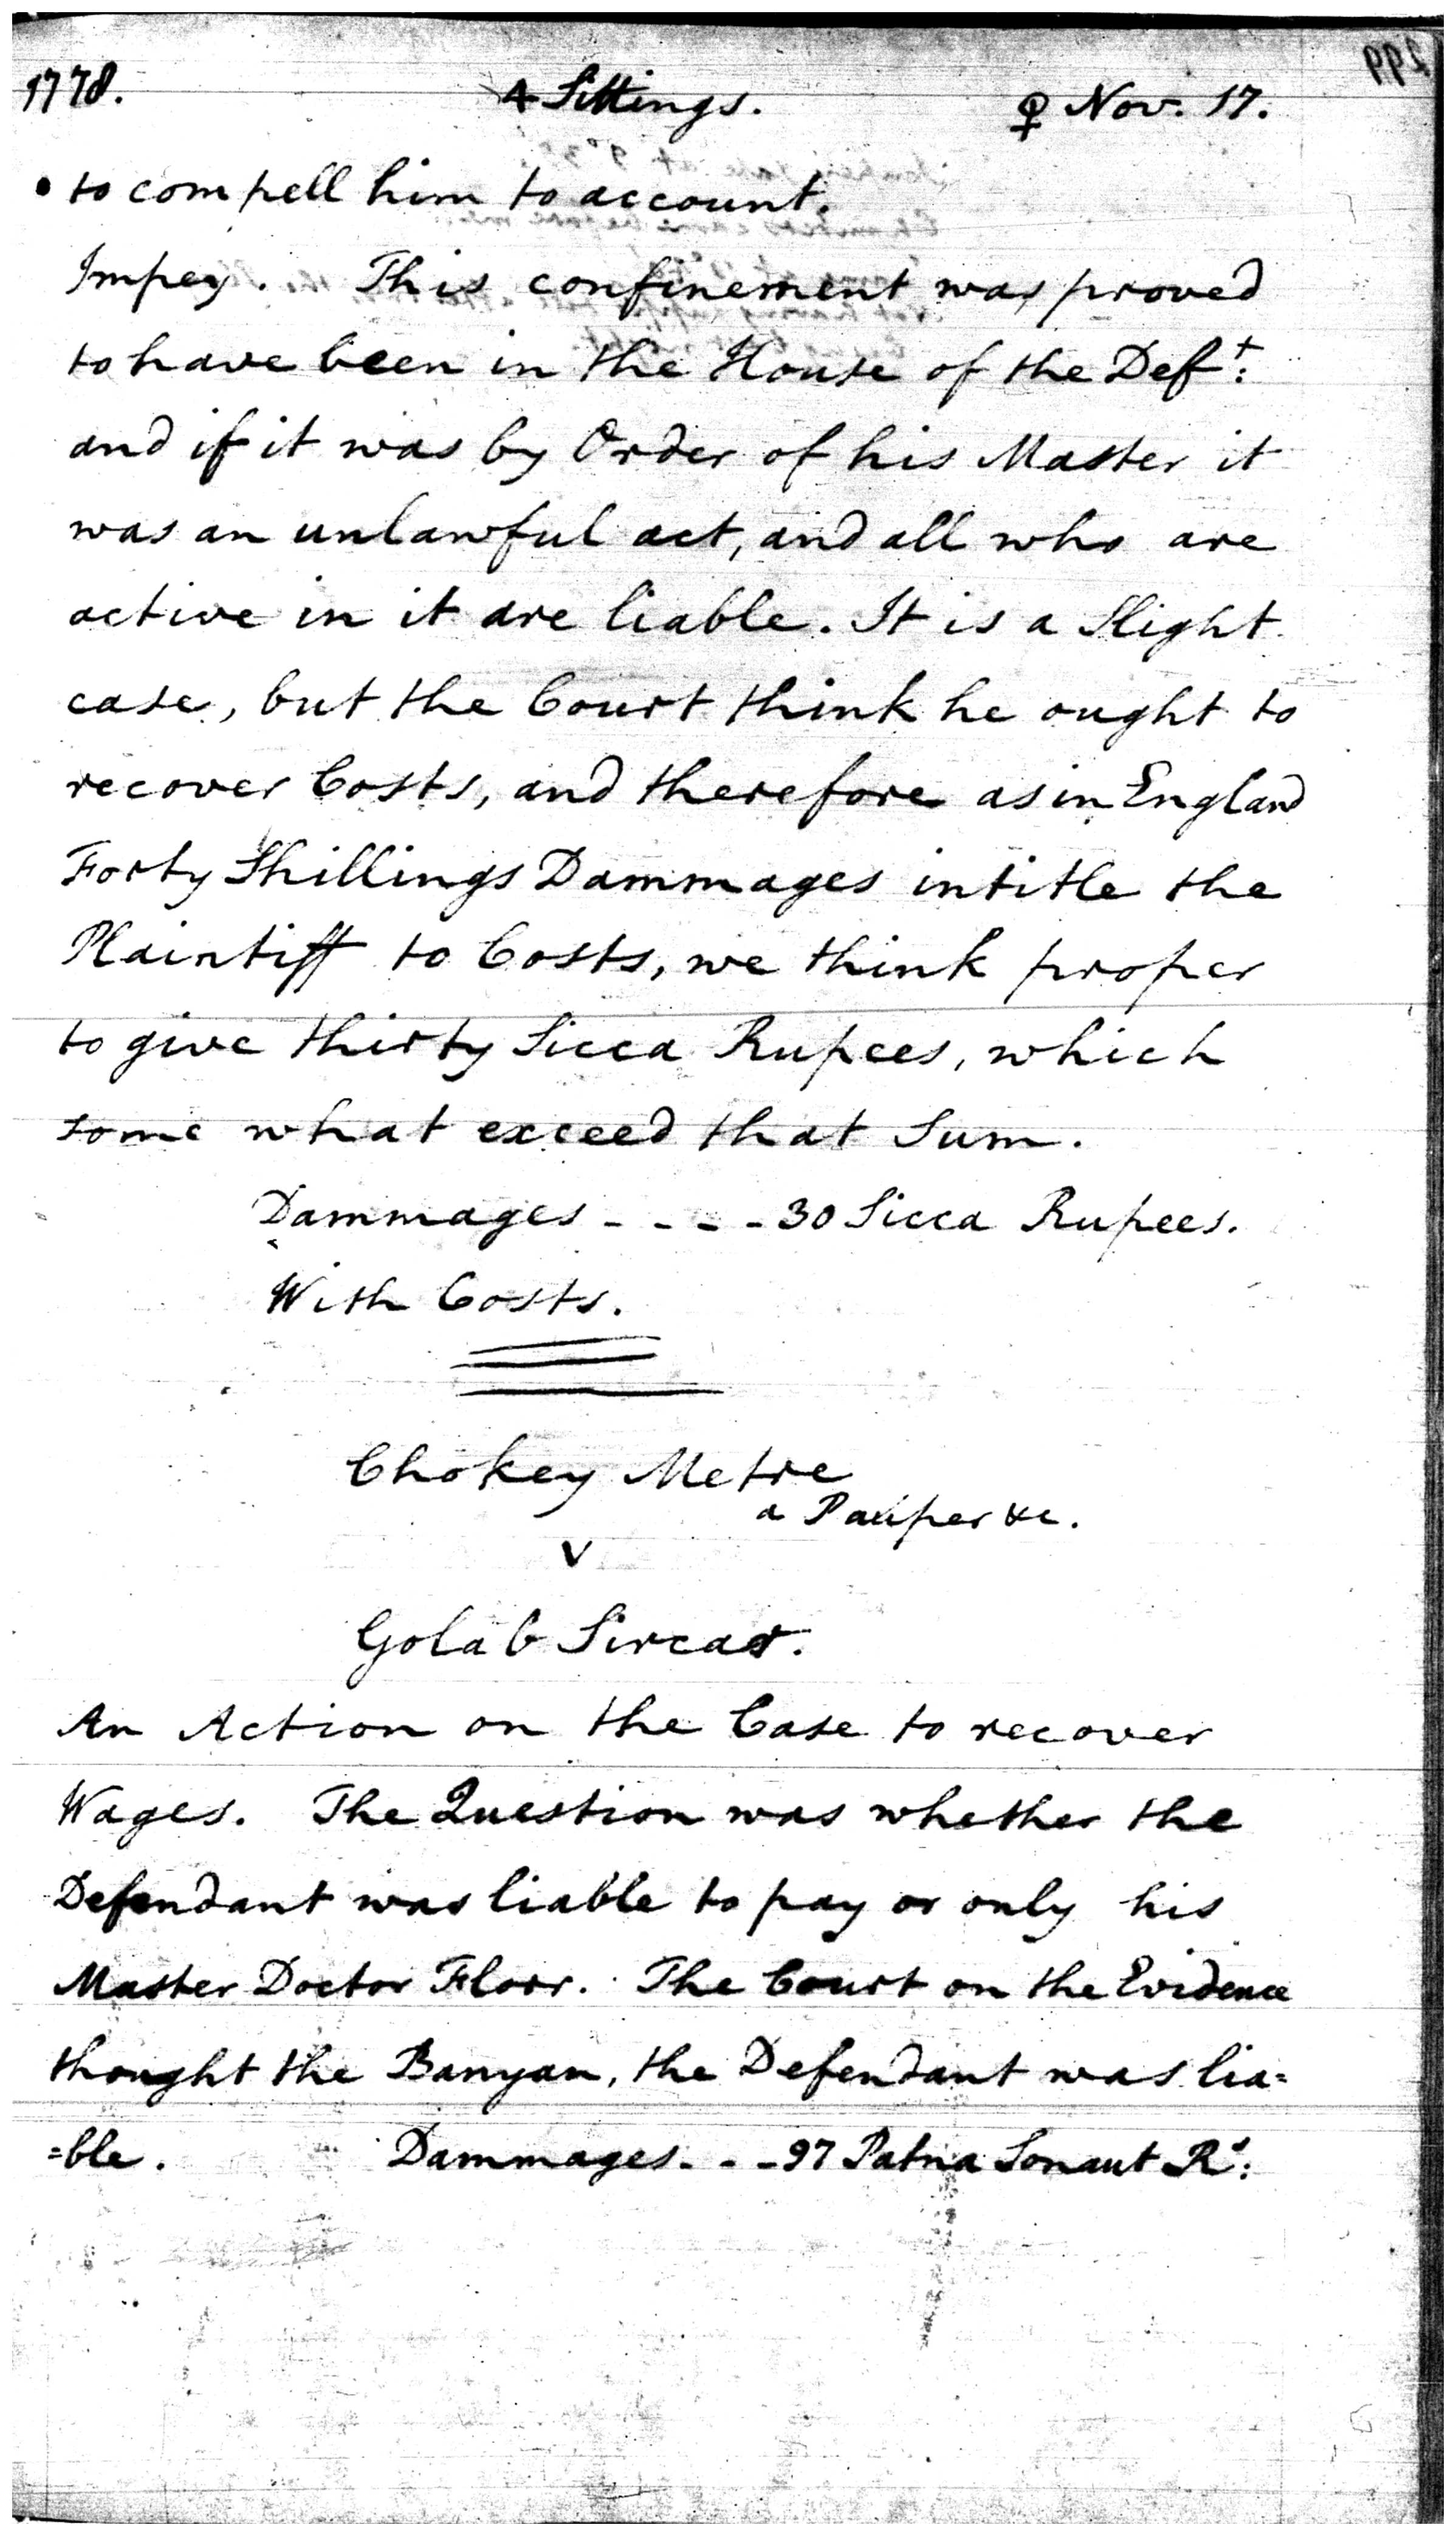 1778. 4 Sittings. ♀ Nov. 17.
to compell him to account.
Impey. This confinement was proved
to have been in the House of the Def.t:
and if it was by Order of his Master it
was an unlawful act, and all who are
active in it are liable. It is a Slight
case, but the Court think he ought to
recover Costs, and therefore as in England
Forty Shillings Dammages intitle the
Plaintiff to Costs, we think proper
to give thirty Sicca Rupees, which
some what exceed that Sum.
Dammages - - - - 30 Sicca Rupees.
With Costs.
Chokey Metre
a Pauper &c.
v
Golab Sircar.
An Action on the Case to recover
Wages. The Question was whether the
Defendant was liable to pay or only his
Master Doctor Floor. The Court on the Evidence
thought the Banyan, the Defendant was lia=
=ble. Dammages - - - 97 Patna Sonaut R.s: